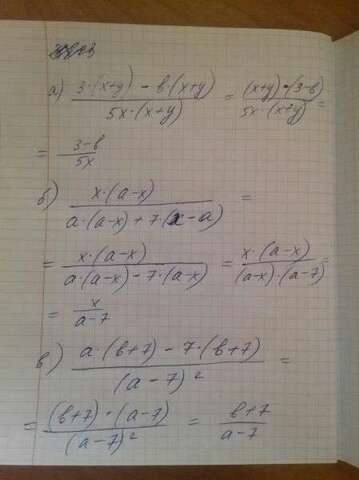 а) 3·(x+y) - в·(x+y) / 5x·(x+y) = (x+y)·(3-в) / 5x·(x+y) =
= 3-в / 5x
б) x·(a-x) / a·(a-x) + 7·(x-a) =
= x·(a-x) / a·(a-x) - 7·(a-x) = x·(a-x) / (a-x)·(a-7) =
= x / a-7
в) a·(в+7) - 7·(в+7) / (a-7)² =
= (в+7)·(a-7) / (a-7)² = в+7 / a-7